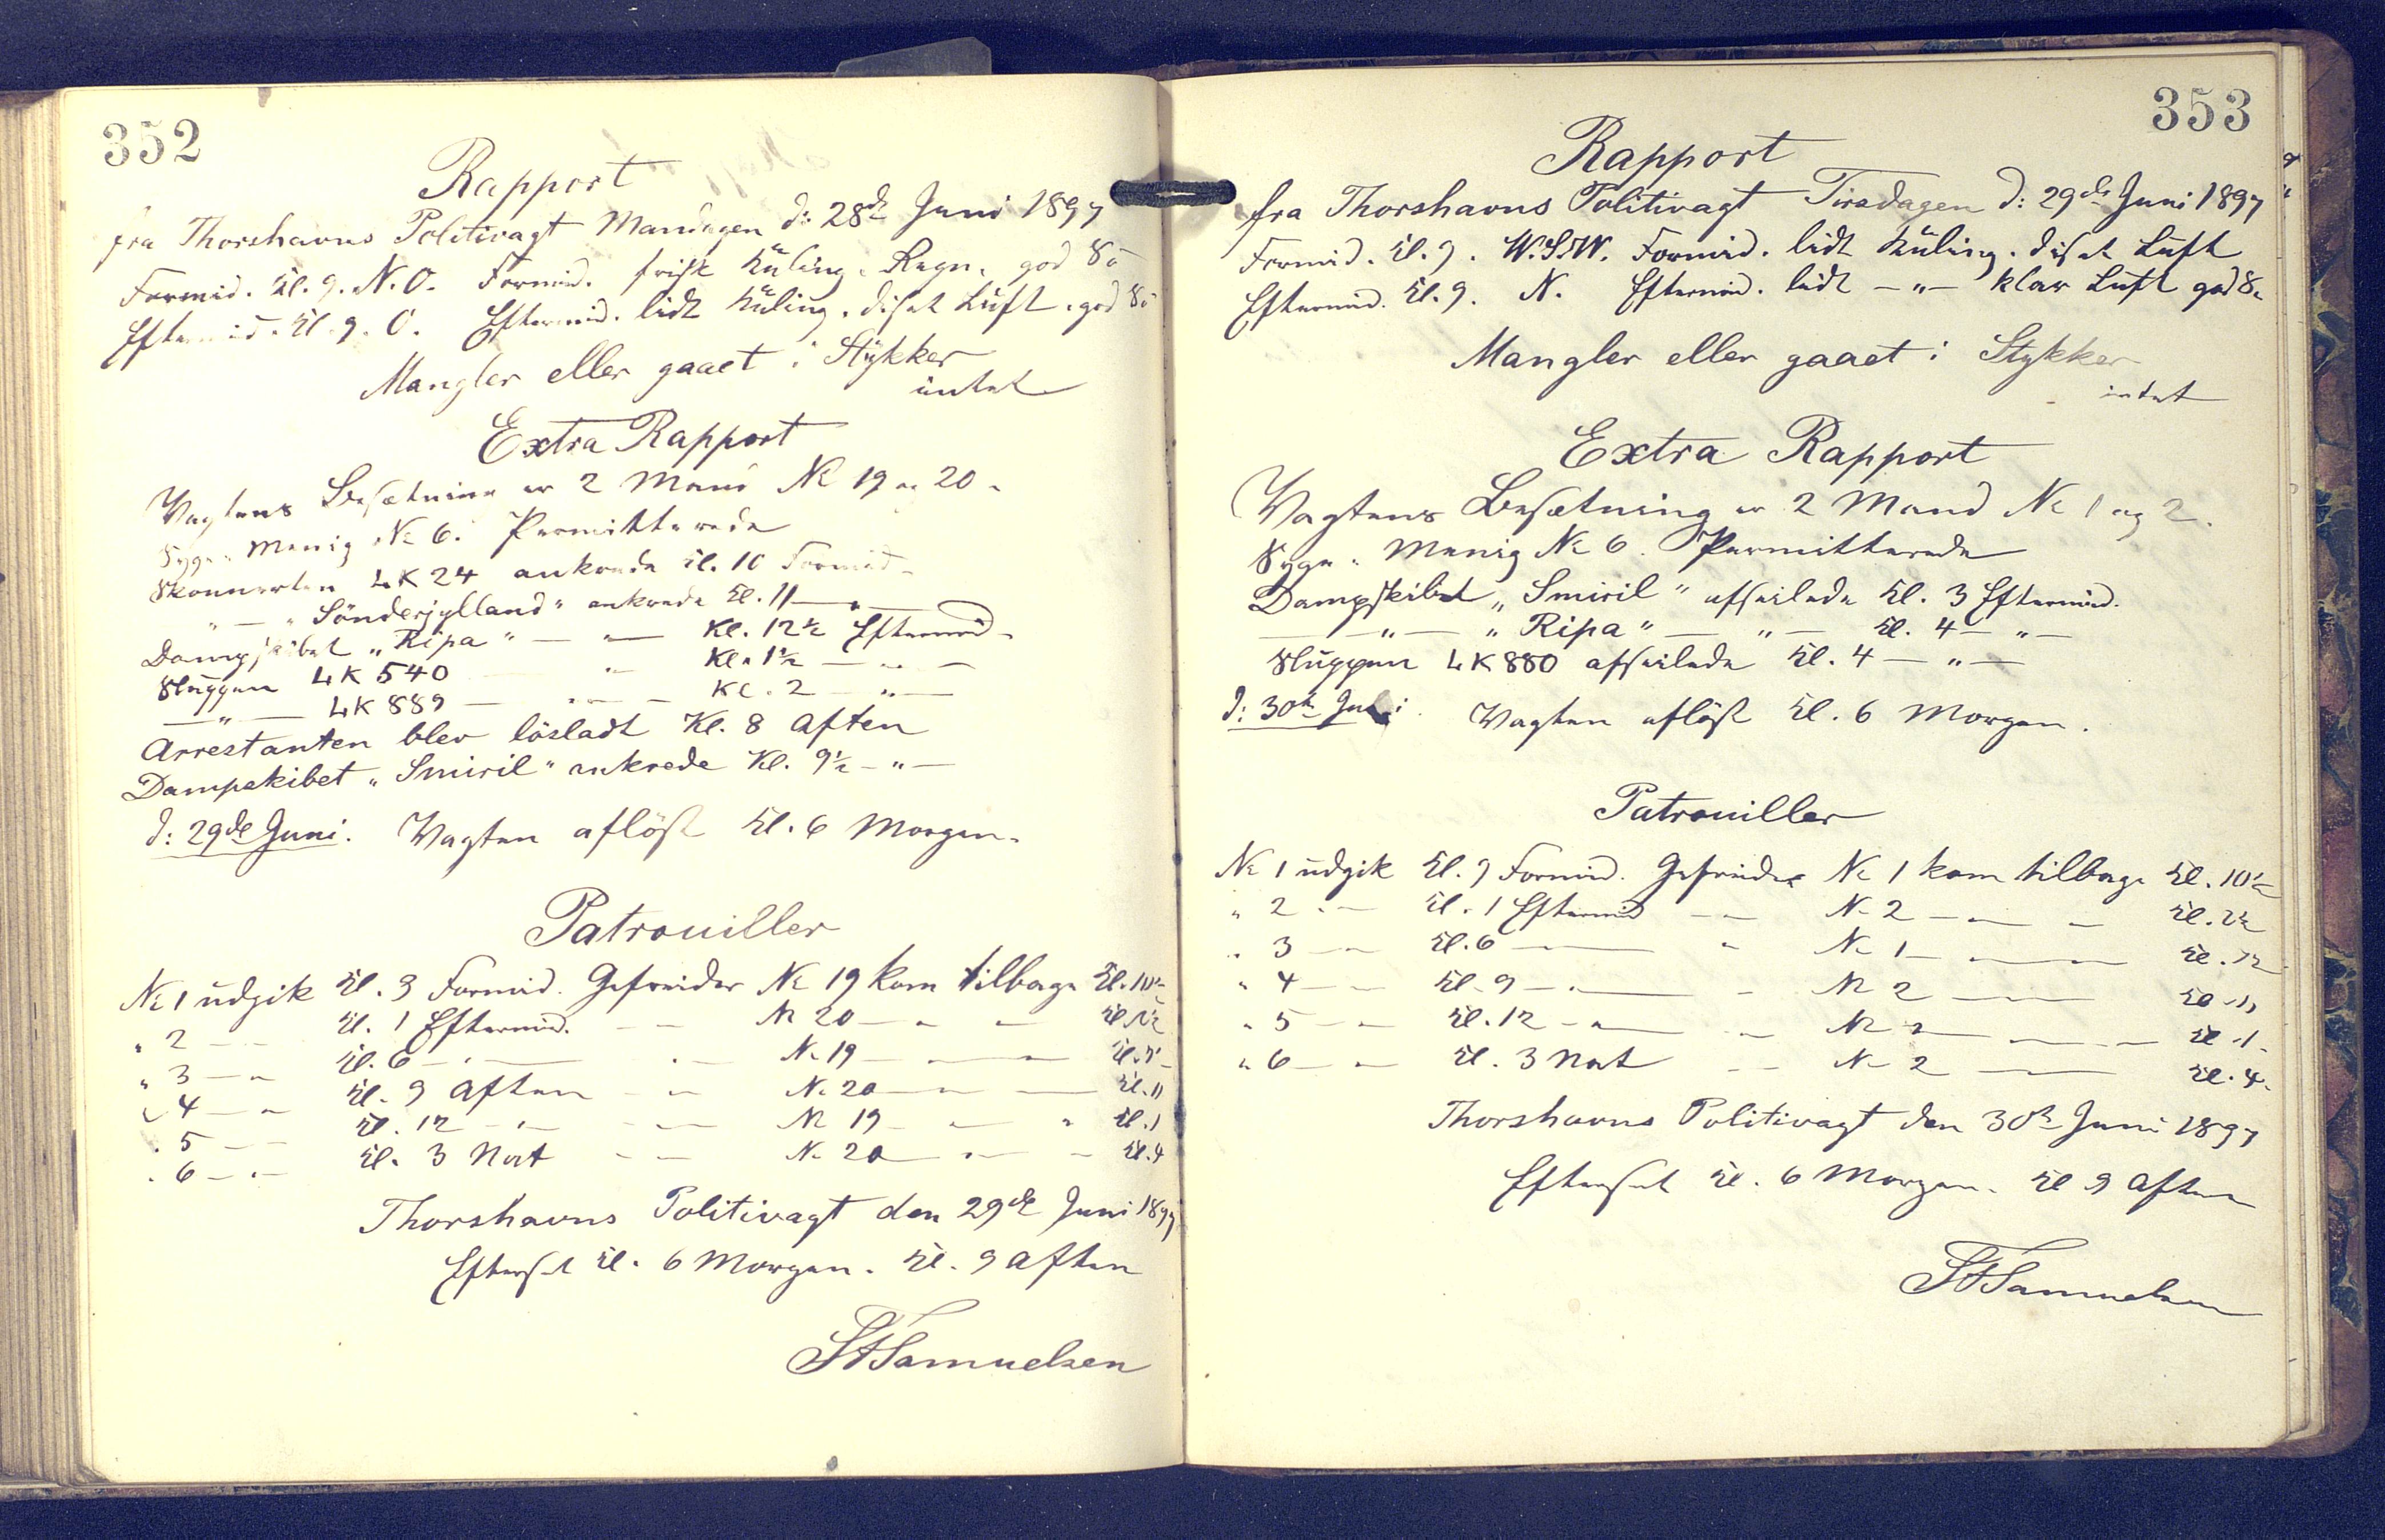 352
Rapport
fra Thorshavns Politivagt Mandagen d: 28de Juni 1897
Formid. Kl. 9. N.O. Formid. frisk Kuling. Regn. god Sö
Eftermid. Kl. 9. O. Eftermid. lidt Kuling. diset Luft. god Sö
Mangler eller gaaet i Stykker
intet
Extra Rapport
Vagtens Besætning er 2 Mand No 19 og 20.
Syge. Menig No 6. Permitterede
Skonnerten LK 24 ankrede Kl. 10 Formid.
" — " Sönderjylland" ankrede Kl. 11 — " —
Dampskibet "Ripa" — " — Kl. 12½ Eftermid.
Sluppen LK 540 — " — Kl. 1½ — " —
— " — LK 889 — " — Kl. 2 — " —
Arrestanten blev lösladt Kl. 8 Aften
Dampskibet "Smiril" ankrede Kl. 9½ — " —
d: 29de Juni. Vagten aflöst Kl. 6 Morgen.
Patrouiller
No 1 udgik Kl. 9 Formid. Gefreider No 19 kom tilbage Kl. 10½
" 2 — " — Kl. 1 Eftermid. — " — No 20 — " — Kl. 2½
" 3 — " — Kl. 6 — " — — " — No 19 — " — Kl. 7½
" 4 — " — Kl. 9 Aften — " — No 20 — " — Kl. 11
" 5 — " — Kl. 12 — " — — " — No 19 — " — Kl. 1
" 6 — " — Kl. 3 Nat — " — No 20 — " — Kl. 4
Thorshavns Politivagt den 29de Juni 1897
Efterset Kl. 6 Morgen. Kl. 9 Aften
Samuelsen
353
Rapport
fra Thorshavns Politivagt Tirsdagen d: 29de Juni 1897
Formid. Kl. 9. W.S.W. Formid. lidt Kuling. diset Luft
Eftermid. Kl. 9. N. Eftermid. lidt — " — klar Luft god S.
Mangler eller gaaet i Stykker
intet
Extra Rapport
Vagtens Besætning er 2 Mand No 1 og 2.
Syge. Menig No 6. Permitterede
Dampskibet "Smiril" afseilede Kl. 3 Eftermid.
— " — "Ripa" — " — Kl. 4 — " —
Sluppen LK 880 afseilede Kl. 4 — " —
d: 30te Juni. Vagten aflöst Kl. 6 Morgen.
Patrouiller
No 1 udgik Kl. 9 Formid. Gefreider No 1 kom tilbage Kl. 10½
" 2 — " — Kl. 1 Eftermid — " — No 2 — " — Kl. 2½
" 3 — " — Kl. 6 — " — " No 1 — " — Kl. 7½
" 4 — " — Kl. 9 — " — — " — No 2 — " — Kl. 11
" 5 — " — Kl. 12 — " — — " — No — " — Kl. 1
" 6 — " — Kl. 3 Nat — " — No 2 — " — Kl. 4
Thorshavns Politivagt den 30te Juni 1897
Efterset Kl. 6 Morgen. Kl 9 Aften
Samuelsen